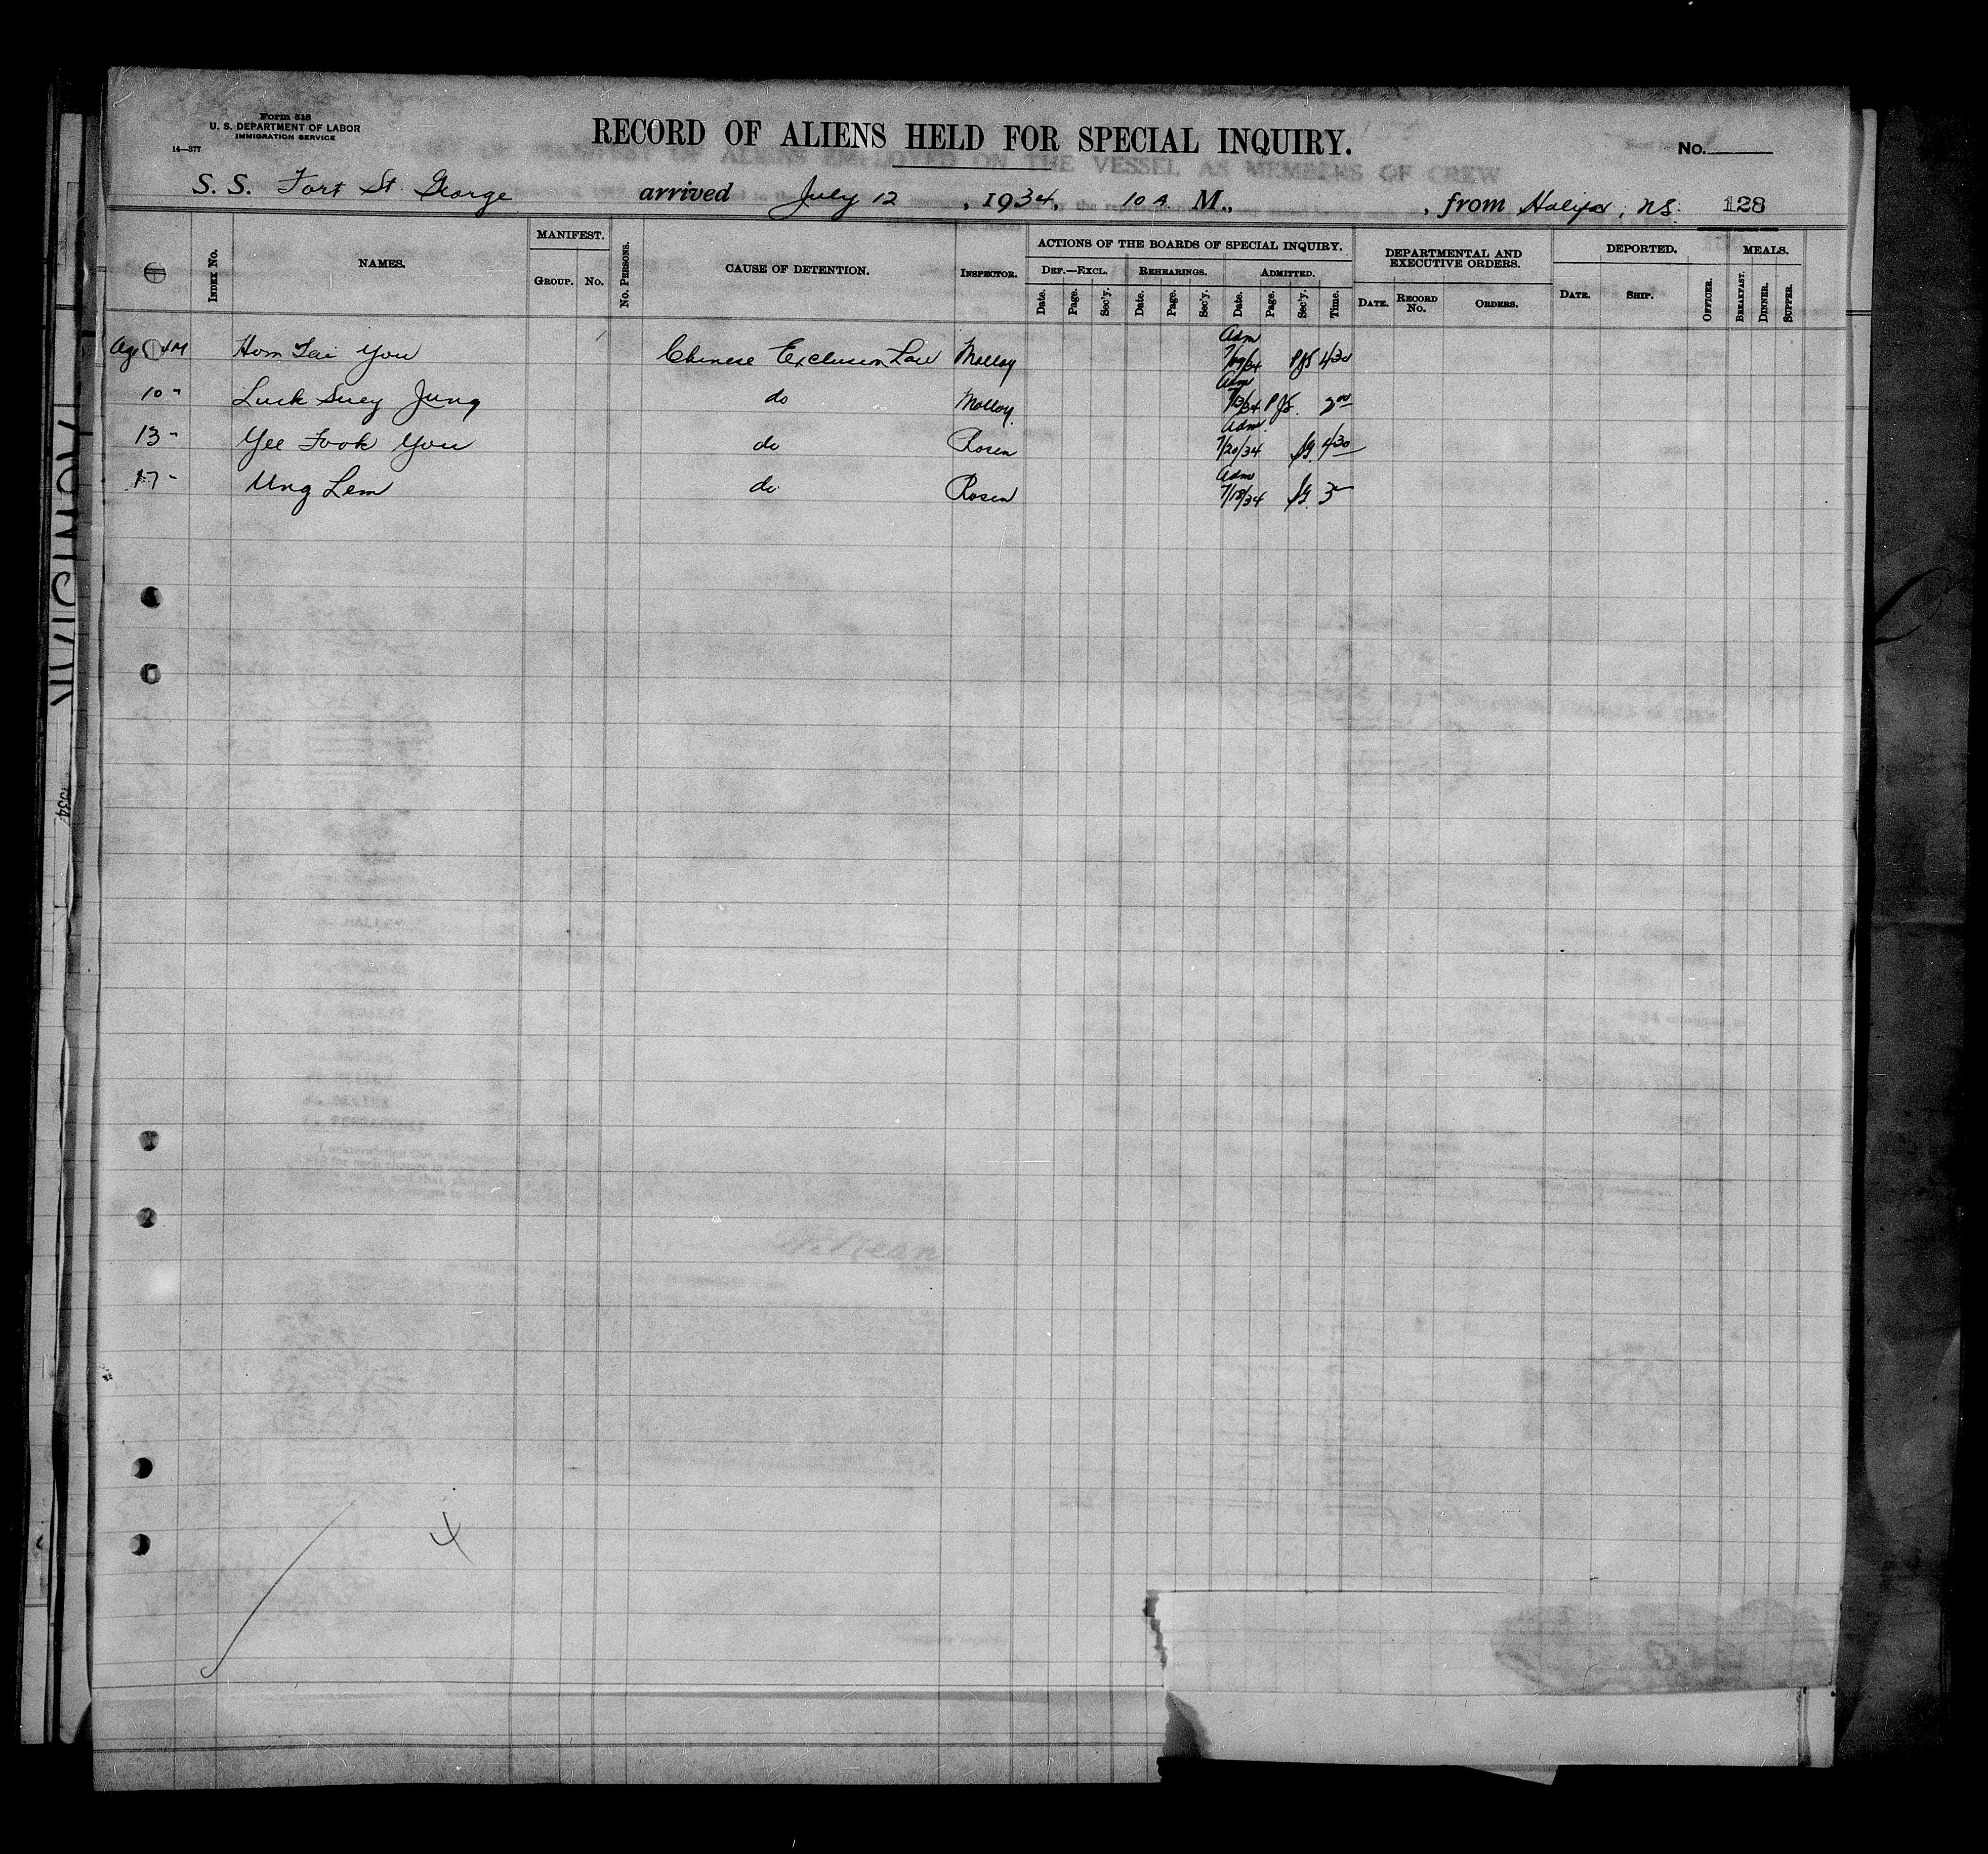 Form 518
U. S. DEPARTMENT OF LABOR
IMMIGRATION SERVICE
14—377
RECORD OF ALIENS HELD FOR SPECIAL INQUIRY.
No.
S. S. Fort St. George arrived July 12, 1934, 10 A M., , from Halifax, N.S. 128
INDEX No.
NAMES.
MANIFEST.
GROUP. No.
No. PERSONS.
CAUSE OF DETENTION.
INSPECTOR.
ACTIONS OF THE BOARDS OF SPECIAL INQUIRY.
DEF.—EXCL. REHEARINGS. ADMITTED.
Date. Page. Sec'y. Date. Page. Sec'y. Date. Page. Sec'y. Time.
DEPARTMENTAL AND EXECUTIVE ORDERS.
DATE. RECORD No. ORDERS.
DEPORTED.
DATE. SHIP. OFFICER.
MEALS.
BREAKFAST. DINNER. SUPPER.
Age 4 M Hom Tai You Chinese Exclusion Law Molloy Adm 7/19/34 PJS 4 30
10 " Luck Suey Jung do Molloy. Adm 7/13/34 PJS. 2 00
13 - Yee Fook You do Rosen Adm. 7/20/34 4 30
17 - Ung Lem do Rosen Adm 7/18/34 3
4